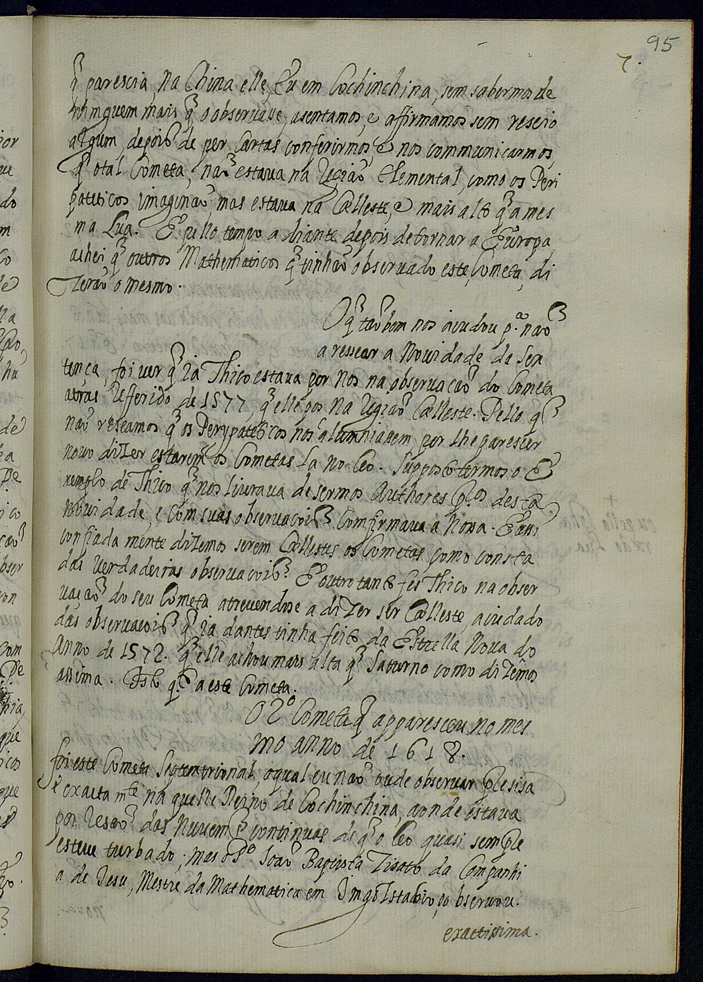 95
7.
q̃ parescia na China elle, e eu em Cochinchina, sem sabermos de
ninguem mais q̃ o observasse, asentamos, e affirmamos sem resceio
algum, depois de per cartas conferirmos e nos communicarmos,
q̃ o tal Cometa, naõ estava na Regiaõ Elemental, como os Peri
pateticos imaginaõ mas estava na Cælleste, e mais alto q̃ a mes
ma Lua. E pello tempo a diante depois de tornar a Europa
achei q̃ outros Mathematicos q̃ tinhaõ observado este Cometa, di
zeraõ o mesmo.
O q̃ taõbem nos aiudou p.ª naõ
a rescear a Novidade da Sen
tença, foi ver q̃ ia Thico estava por nos na observaçaõ do Cometa
atras Refferido de 1577 q̃ elle pos na Regiaõ Cælleste. Pello q̃
naõ resceamos q̃ os Perypateticos nos por lhe parescer
novo dizer estarem os Cometas la no Ceo. Supposto termos o E
xemplo de Thico q̃ nos livrava de sermos Authores desta
Novidade, e com suas observaçoẽs confirmava a Nossa. E assi
confiada mente dizemos serem Cællestes os Cometas como consta
das verdadeiras observaçoiẽs. E outro tanto fes Thico na obser
vaçaõ do seu Cometa atrevendose a dizer ser Cælleste aiudado
das observaçoiẽs q̃ ia dantes tinha feito da Estrella Nova do
Anno de 1572. q̃ elle achou mais alta q̃ Saturno como dizemos
assima. Isto q.to a este Cometa.
O 2.º Cometa q̃ apparesceu no mes
mo anno de 1618.
foi este Cometa Septentrional, o qual eu naõ pude observar precisa
e exacta m.te na quelle Reino de Cochinchina, aonde estava
por resaõ das Nuvem̃s continuas de q̃ o Ceo quasi sempre
esteve turbado; mas o P.e Joaõ Baptista Zisato da Companhi
a de Jesu, Mestre da Mathematica em Ingolstadio, o observou.
exactissima.